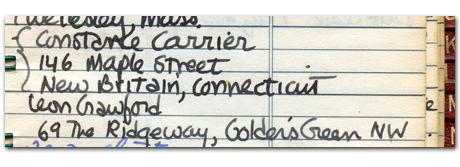 Wellesley, Mass.
Constance Carrier
146 Maple Street
New Britain, Connecticut
Leon Crawford
69 The Ridgeway, Golder's Green NW